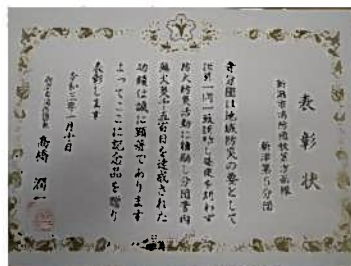 表彰状
新潟市消防団秋葉方面隊
新津第5分団
貴分団は地域防災の要として
団員一同一致団結し昼夜を問わず
防火防災活動に精励し分団管内
無火災 五百日を達成された
功績は誠に顕著であります
よってここに記念品を贈り
表彰します
令和 年一月 日
高橋 潤一